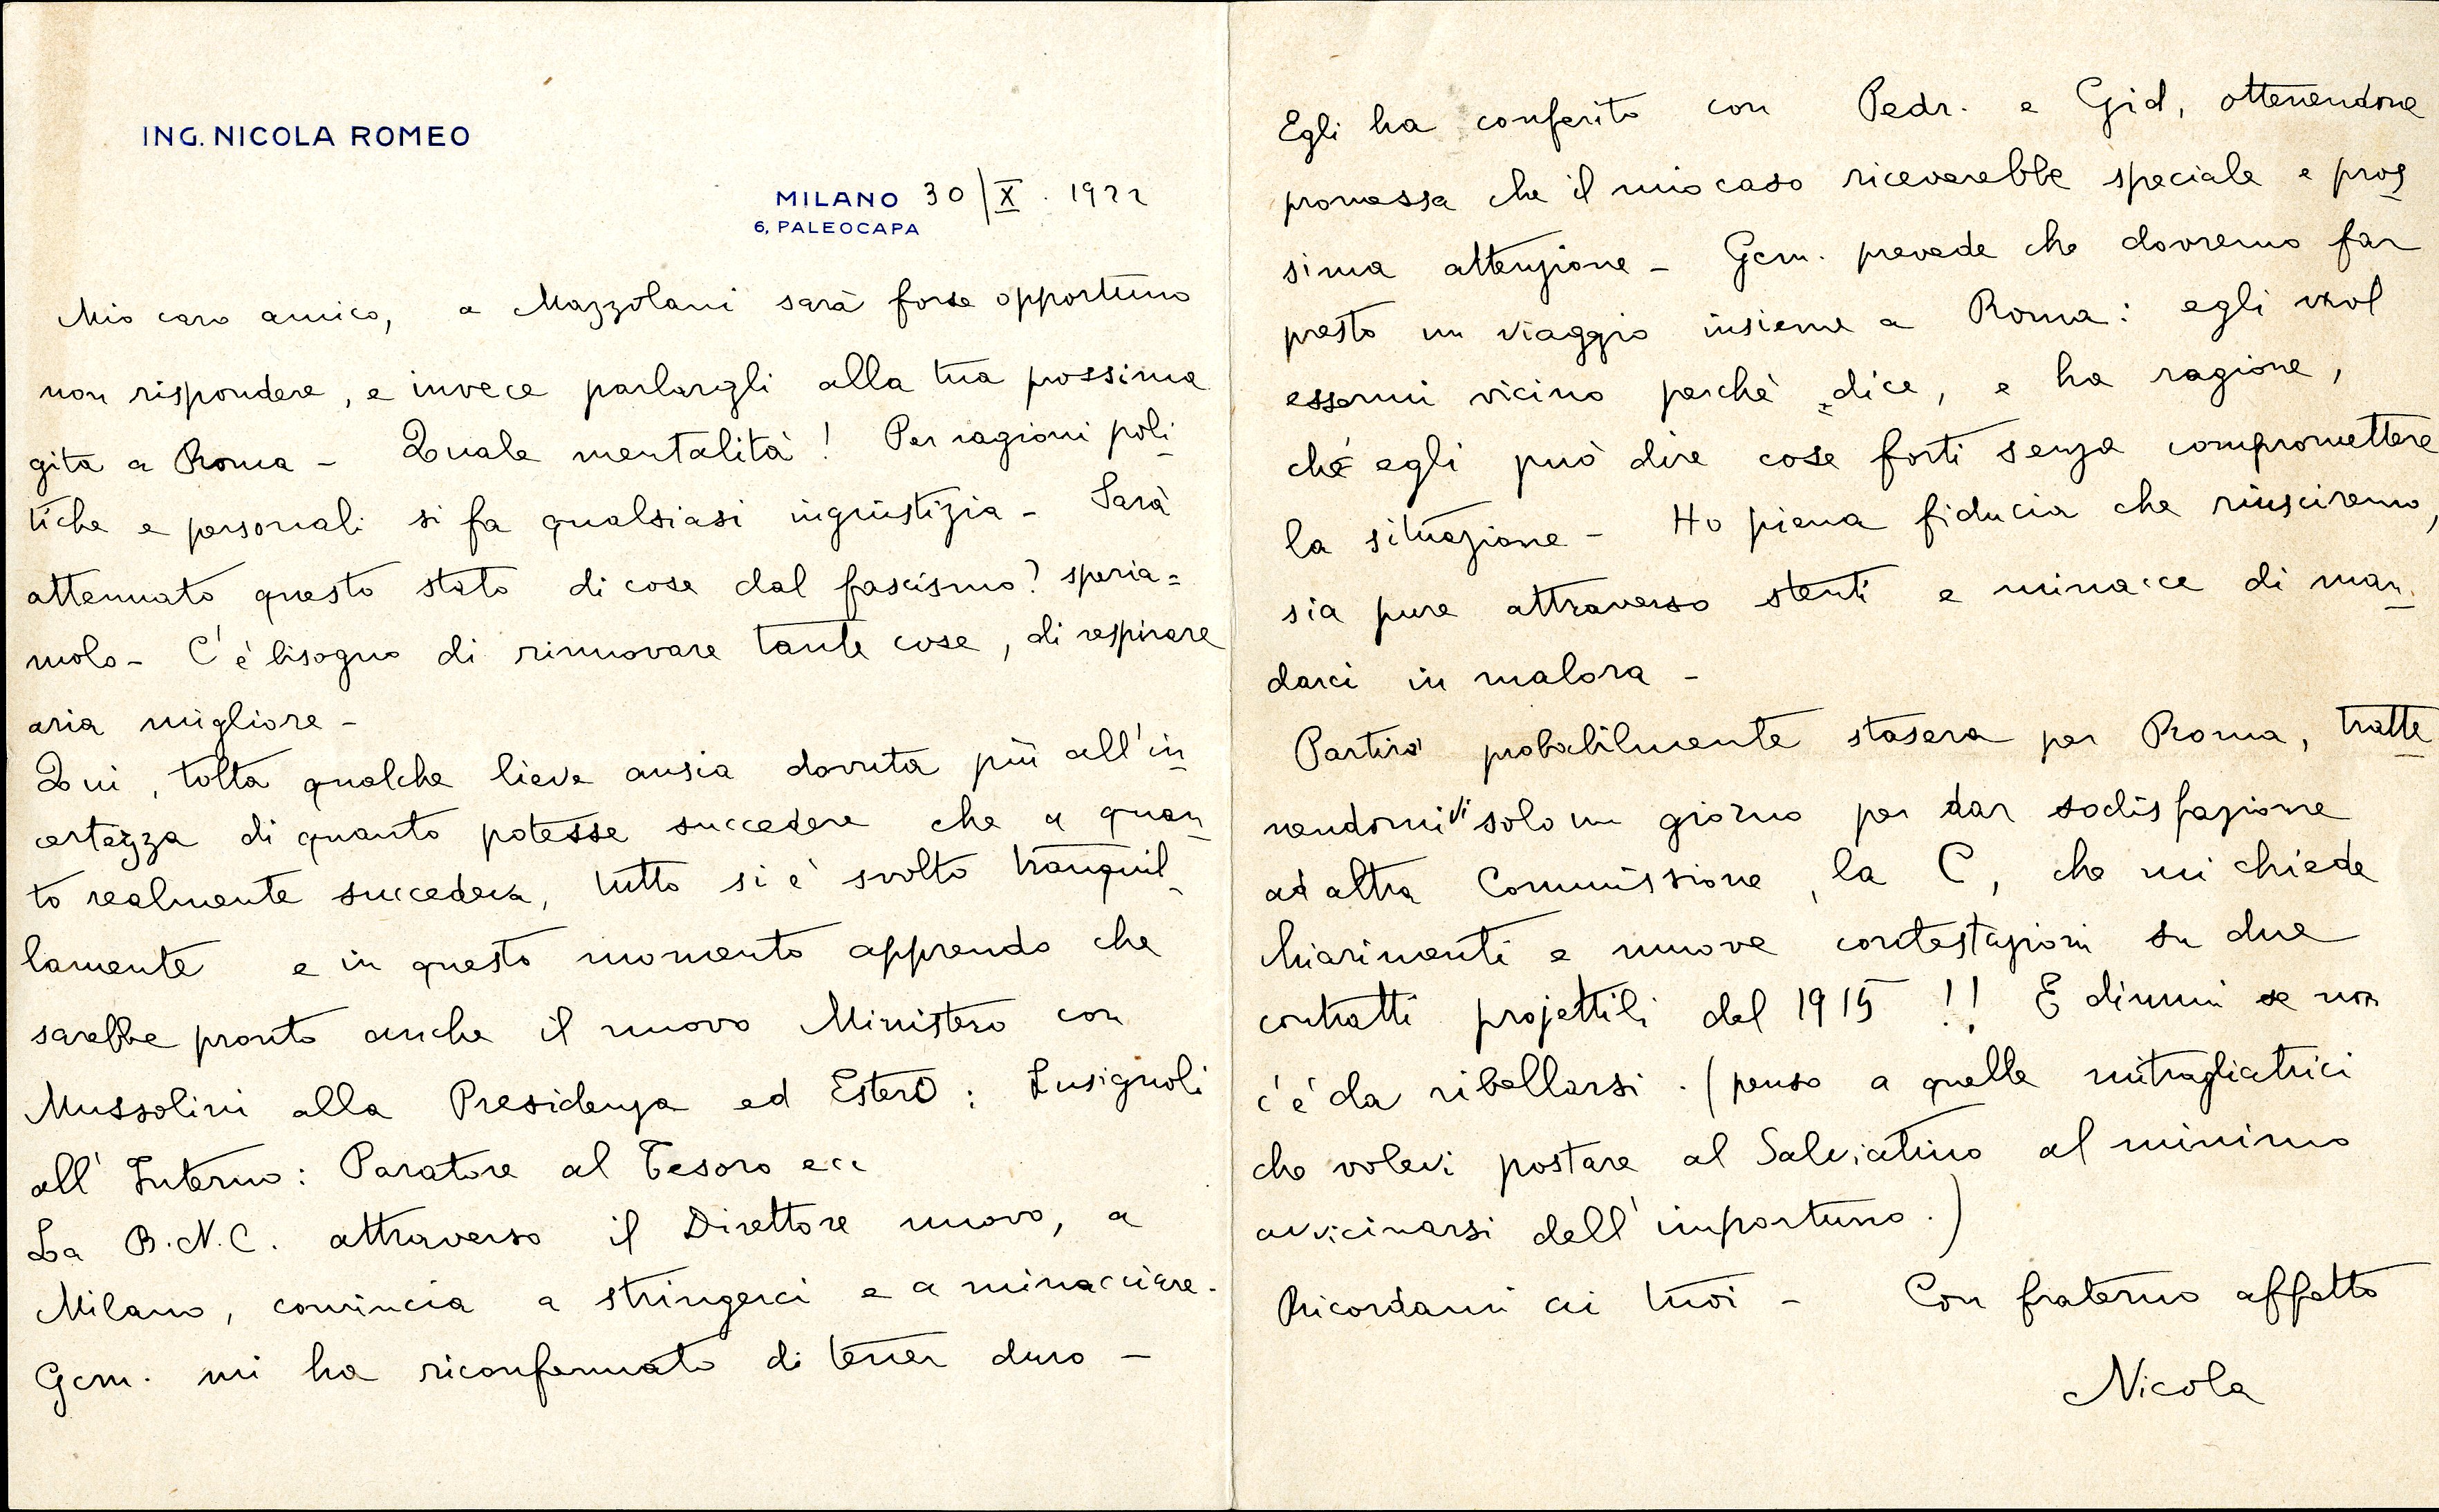 ING. NICOLA ROMEO
MILANO 30/X. 1922
6, PALEOCAPA
Mio caro amico, a Mazzolani sarà forse opportuno
non rispondere, e invece parlargli alla tua prossima
gita a Roma - Quale mentalità! Per ragioni poli
tiche e personali si fa qualsiasi ingiustizia - Sarà
attenuato questo stato di cose dal fascismo? speria=
molo - C'è bisogno di rinnovare tante cose, di respirare
aria migliore -
Qui, tolta qualche lieve ansia dovuta più all'in
certezza di quanto potesse succedere che a quan
to realmente succedeva, tutto si è svolto tranquil
lamente e in questo momento apprendo che
sarebbe pronto anche il nuovo Ministero con
Mussolini alla Presidenza ed Esteri: Lusignoli
all'Interno: Paratore al Tesoro ecc
La B.N.C. attraverso il Direttore nuovo, a
Milano, comincia a stringerci e a minacciare.
Gcm. mi ha riconfermato di tener duro -
Egli ha conferito con Pedr. e Gid, ottenendone
promessa che il mio caso riceverebbe speciale e pros
sima attenzione - Gcm. prevede che dovremo far
presto un viaggio insieme a Roma: egli vuol
essermi vicino perchè dice, e ha ragione,
che egli può dire cose forti senza compromettere
la situazione - Ho piena fiducia che riusciremo,
sia pure attraverso stenti e minacce di man
darci in malora -
Partirò probabilmente stasera per Roma, tratte
nendomivi solo un giorno per dar sodisfazione
ad altra Commissione, la C, che mi chiede
chiarimenti e nuove contestazioni su due
contratti projettili del 1915 !! E dimmi se non
c'è da ribellarsi. (penso a quelle mitragliatrici
che volevi postare al Salviatino al minimo
avvicinarsi dell'importuno.)
Ricordami ai tuoi - Con fraterno affetto
Nicola